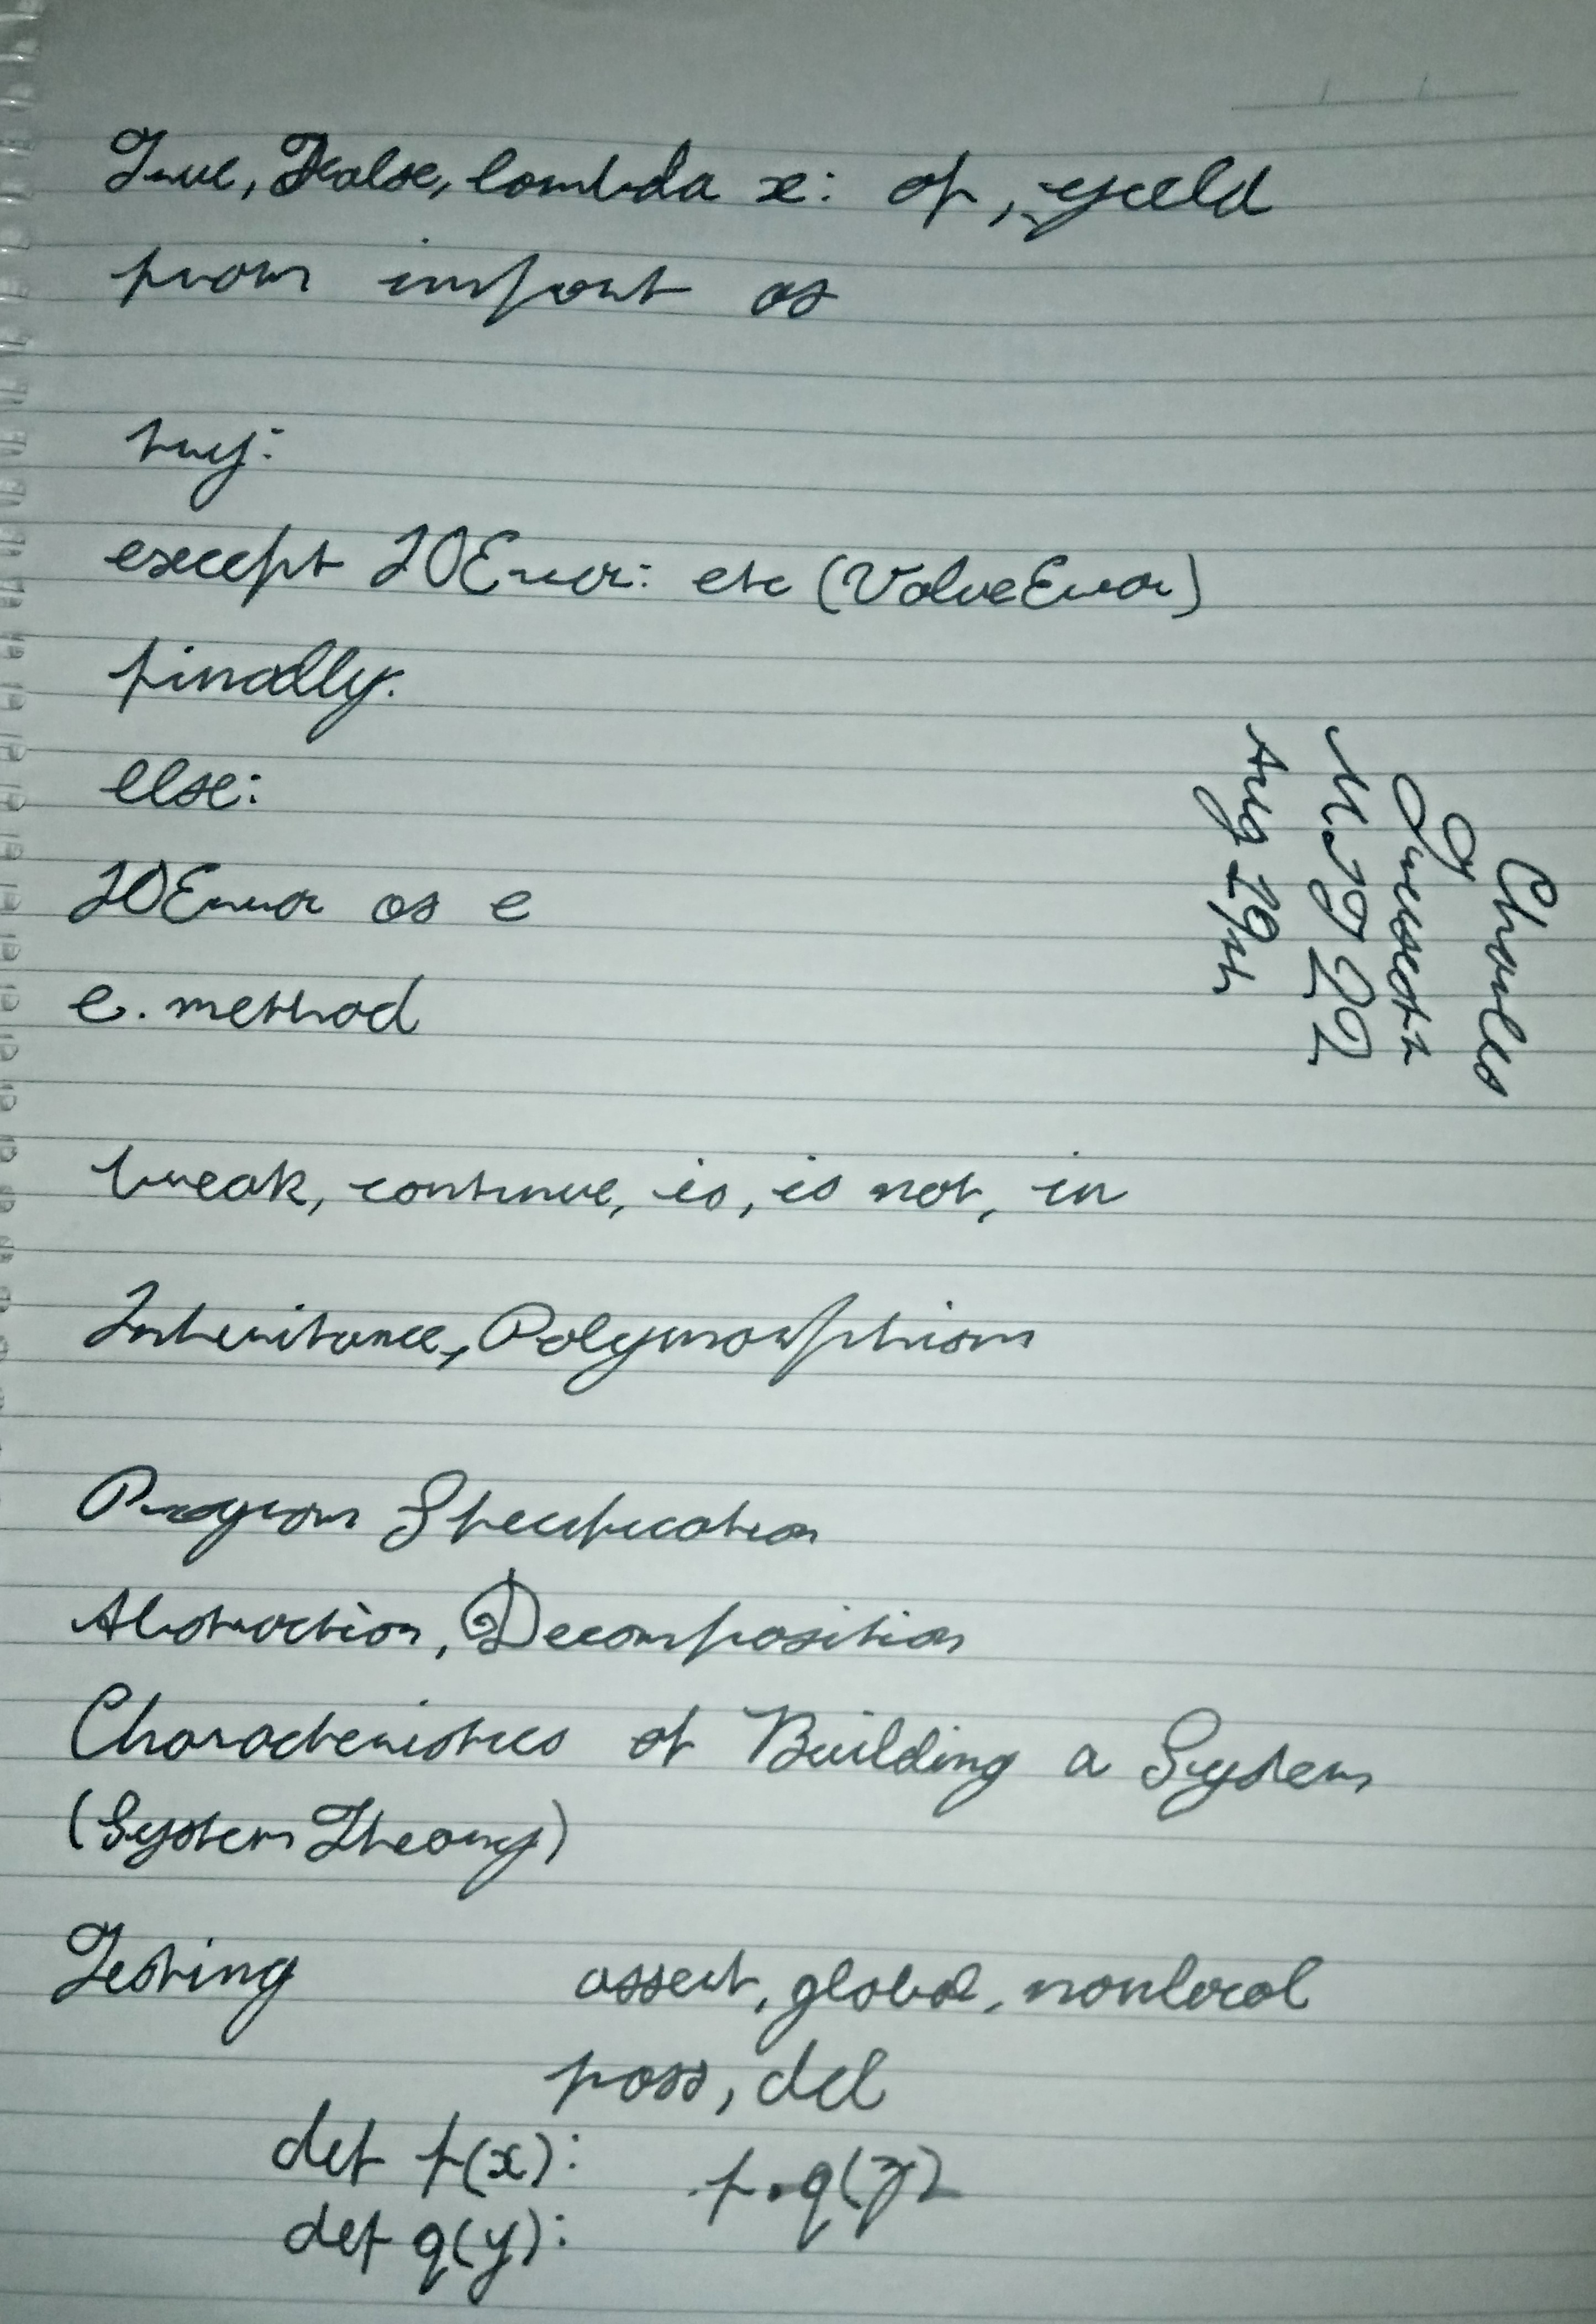 True, False, lambda x: of, yield
from import as
try:
except IOError: etc (ValueError)
finally:
else:
IOError as e
e. method
break, continue, is, is not, in
Inheritance, Polymorphism
Program Specification
Abstraction, Decomposition
Characteristics of Building a System
(System Theory)
Testing
assert, global, nonlocal
pass, del
def f(x):
def q(y):
f.q(y)
Charles
Aug 29th